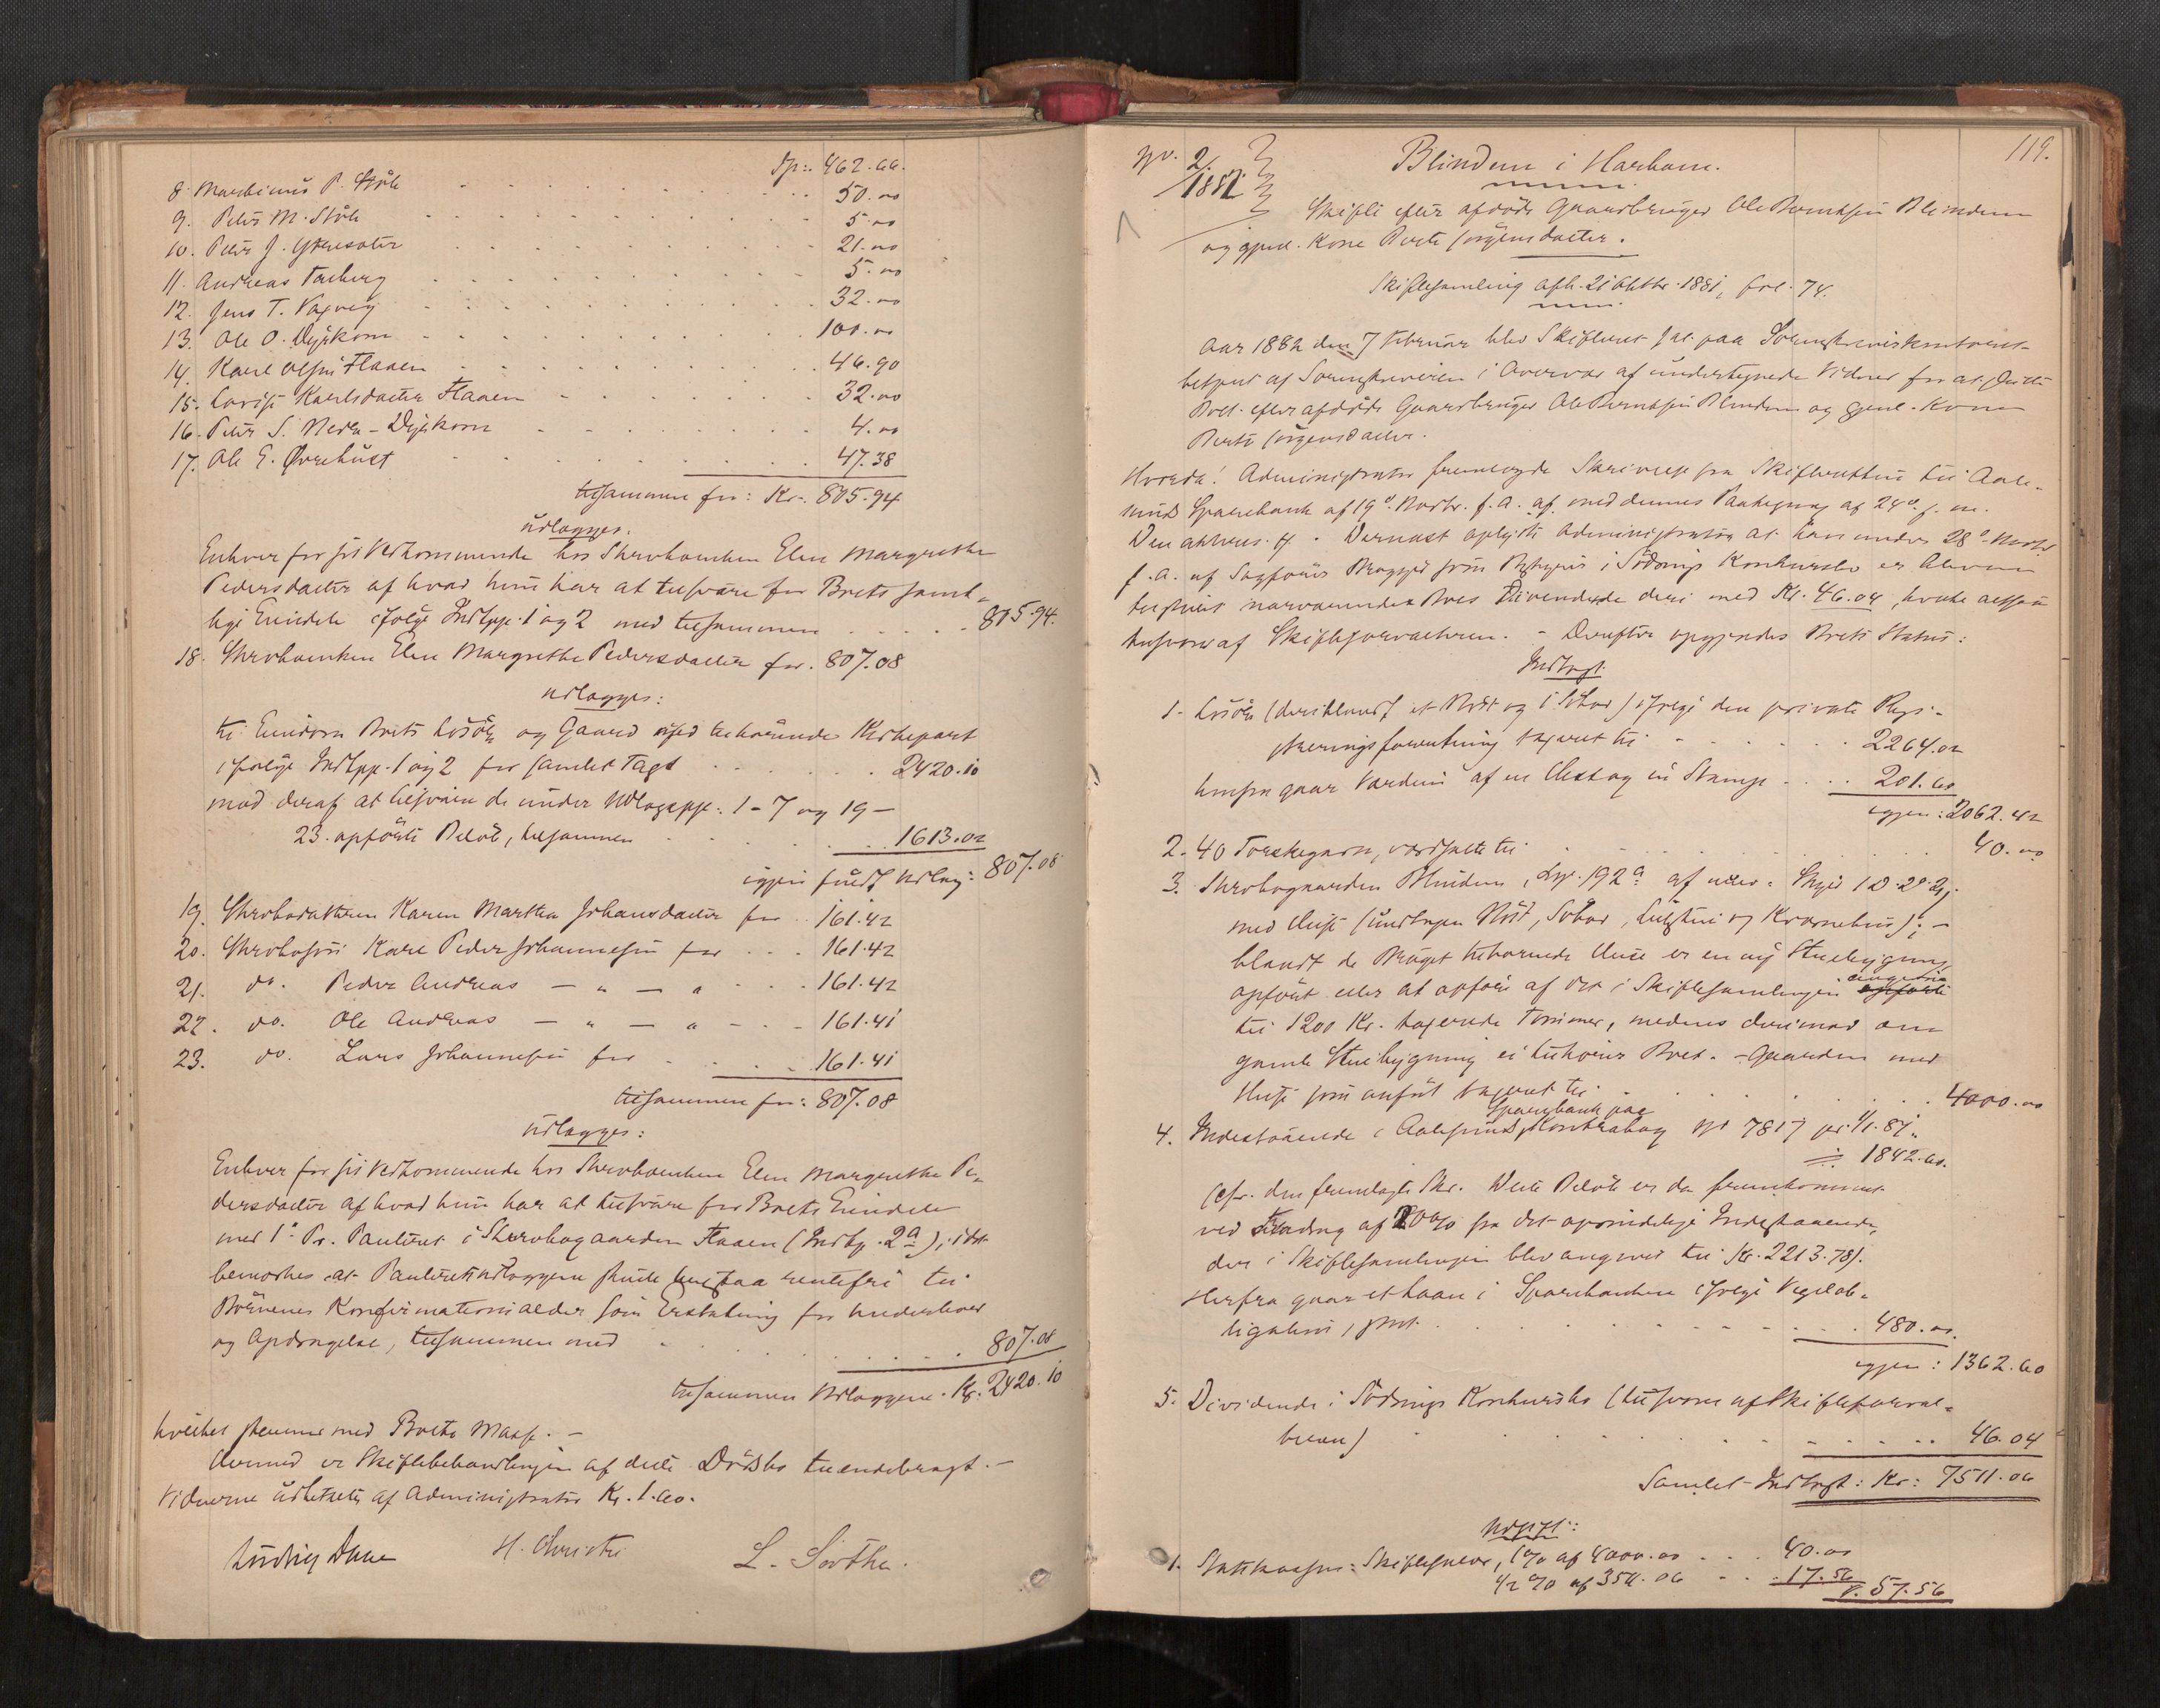 Tp.: 462.66.
8. Martinus P. Støle 50.00
9. Peter M. Støle 5.00
10. Peter J. 21.00
11. Andreas Farberg 5.00
12. Jens T. Vagveg 32.00
13. Ole O. Dyrkorn 100.00
14. Karl Olsen Flaaen 46.90
15. Lovise Karlsdatter Flaaen 32.00
16. Peter S. Nedre-Dyrkorn 4.00
17. Ole E. Øvrehust 47.38
tilsammen for: Kr. 805.94
udlægges:
Enhver for sit Vedkommende hos Stervboenken Elen Margrethe
Pedersdatter af hvad hun har at tilsvare for Boets samt-
lige Eiendele ifølge Indtpp. 1 og 2 med tilsammen 805.94.
18. Stervboenken Elen Margrethe Pedersdatter for 807.08
udlægges:
til Eiendom Boets Løsøre og Gaard med tilhørende Kirkepart
ifølge Indtpp. 1 og 2 for samlet Taxt 2420.10
mod deraf at tilsvare de under Udlægspp: 1-7 og 19-
23 opførte Beløb, tilsammen 1613.02
igjen sit Udlæg: 807.08
19. Stervbodatteren Karen Marthea Johansdatter for 161.42
20. Stervbosøn Karl Peder Johannesen for 161.42
21. do. Peder Andreas — " — " 161.42
22. do. Ole Andreas — " — " 161.41
23. do. Lars Johannesen for 161.41
tilsammen for: 807.08
udlægges:
Enhver for sit Vedkommende hos Stervboenken Elen Margrethe Pe-
dersdatter af hvad hun har at tilsvare for Boets Eiendele
med 1ste Pr. Panteret i Stervbogaarden Flaaen (Indtp. 2a); idet
bemærkes at Panteretsudlæggene skulle henstaa rentefri til
Børnenes Konfirmationsalder som Erstatning for Underhold
og Opdragelse, tilsammen med 807.08
tilsammen Udlæggene Kr. 2420.10
hvilket stemmer med Boets Masse. —
Hermed er Skiftebehandlingen af dette Dødsbo tilendebragt. —
Vidnerne udbetaltes af Administrator Kr. 1.60.
Ludvig Daae H. Christie L. Sørthe.
119.
No. 2/1882
Blindem i Harham.
Skifte efter afdøde Gaardbruger Ole Berntsen Blindem
og gjenl. Kone Berte Jørgensdatter.
Skiftesamling afh. 21 Oktbr. 1881, fol. 74.
Aar 1882 den 7 Februar blev Skifteret sat paa Sorenskriverkontoret
betjent af Sorenskriveren i Overvær af undertegnede Vidner for at slutte
Boet efter afdøde Gaardbruger Ole Berntsen Blindem og gjenl. Kone
Berte Jørgensdatter.
Hvorda: Administrator fremlagde Skrivelse fra Skifteretten til Aale-
sunds Sparebank af 19de Novbr. f.A. med dennes Paategning af 24de s.m.
Den akteres. Dernæst oplyste Administrator at han under 28de Novbr
f.A. af Sagfører som Bestyrer i Tødsings Konkursbo er bleven
tilstillet nærværende Boes Dividende deri med Kr. 46.04, hvilke altsaa
tilsvares af Skifteforvalteren. — Derefter opgjordes Boets Status:
Indtægt
1. Løsøre (deriblandt et Nøst og i Søbod) ifølge den private Regi-
streringsforretning taxeret til 2264.02
herfra gaar Værdien af en Hest og en Stampe 201.60
igjen: 2062.42
2. 40 Torskegarn, værdsatte til 40.00
3. Stervbogaarden Blindem, Løp. 192a af Skyld 1 D. 2 O. 2 s.
med Huse (undtagen Nøst, Søbod, og Kværnehus); —
blandt de Bruget tilhørende Huse er en ny Stuebygning
opført eller at opføre af det i Skiftesamlingen angivne
til 1200 Kr. taxerede Tømmer, medens derimod den
gamle Stuebygning ei tilhører Boet. — Gaarden med
Huse som anført taxeret til 4000.00
4. Indestaaende i Aalesunds Sparebank paa Kontrabog No 7817 pr. 1/1 81
1842.60.
(cfr. den fremlagte Skr. Dette Beløb er da fremkommet
ved Fradrag af 20% fra det oprindelige Indestaaende,
der i Skiftesamlingen blev angivet til Kr. 2213.78).
Herfra gaar et Laan i Sparebanken ifølge Vexelob-
ligation, stort 480.00.
igjen: 1362.60
5. Dividende i Tødsings Konkursbo (tilsvares af Skifteforval-
teren) 46.04
Samlet Indtægt: Kr: 7511.06
Udgift:
1. Statskassen: Skifteafgift, 1% af 4000.00 40.00
1/2 % af 3511.06 17.56
57.56